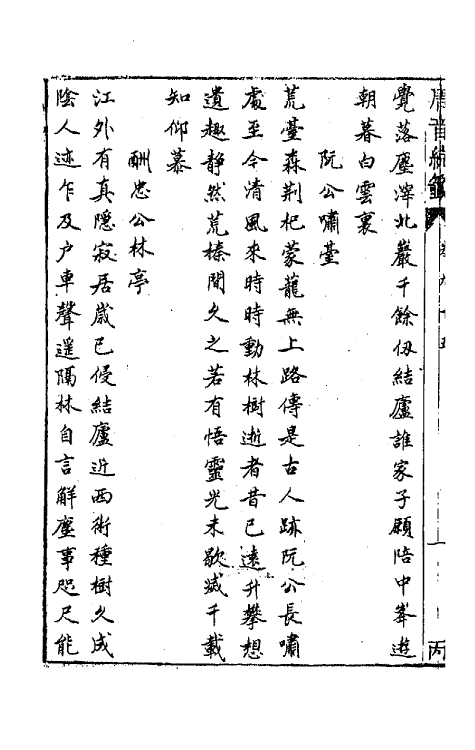 覺落塵滓北巖千餘仭結廬誰家子願陪中峯遊
朝暮白雲裏
阮公嘯臺
荒臺森荆杞蒙蘢無上路傳是古人跡阮公長嘯
處至今清風來時時動林樹逝者昔已遠升攀想
遺趣静然荒榛間久之若有悟靈光未歇滅千載
知仰慕
酬忠公林亭
江外有真隱寂居歲已侵結廬近西術種樹久成
陰人迹乍及户車聲遥隔林自言解塵事咫尺能